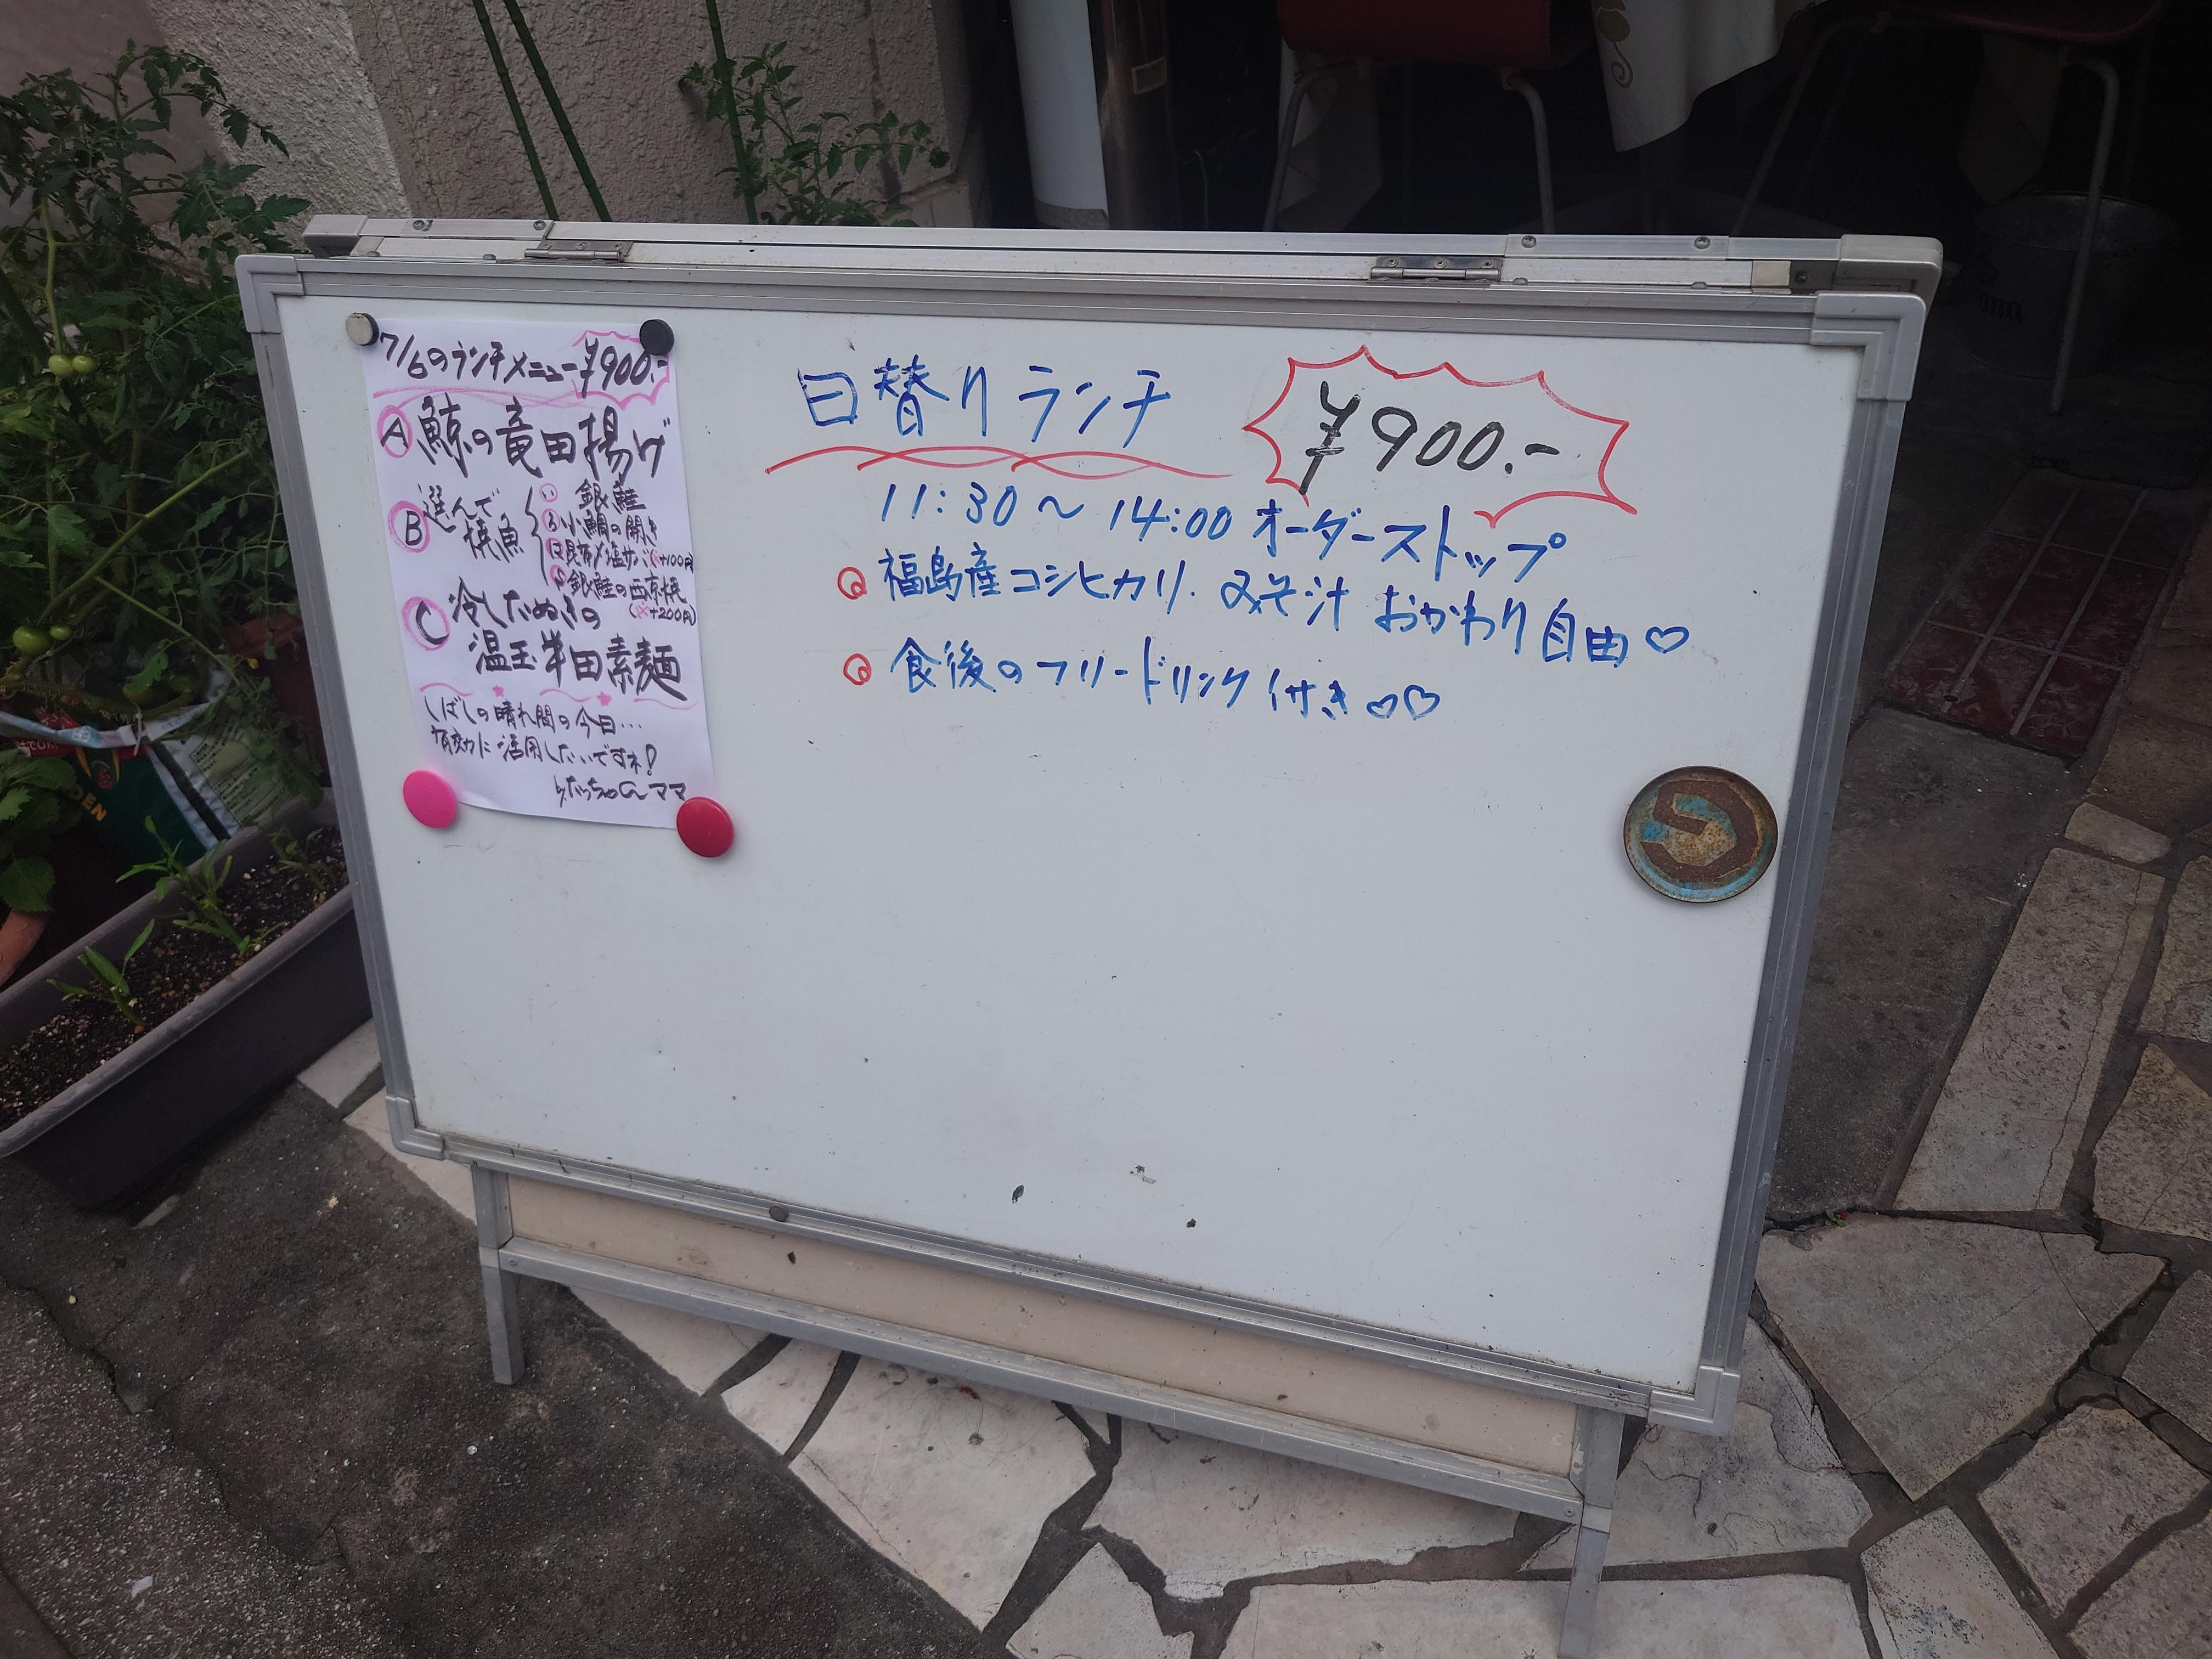 7/6のランチメニュー ¥900.-
Ⓐ 鯨の竜田揚げ
Ⓑ 選んで焼魚
い 銀鮭
ろ 小鯛の開き
は 昆布〆塩サバ(+100円)
銀鮭の西京焼
(+200円)
Ⓒ 冷したぬきの
温玉半田素麺
しばしの晴れ間の今日...
有効に活用したいですネ!
by たっちゃんママ
日替りランチ ¥900.-
11:30〜14:00 オーダーストップ
福島産コシヒカリ. みそ汁 おかわり自由♡
食後のフリードリンク付き♡♡